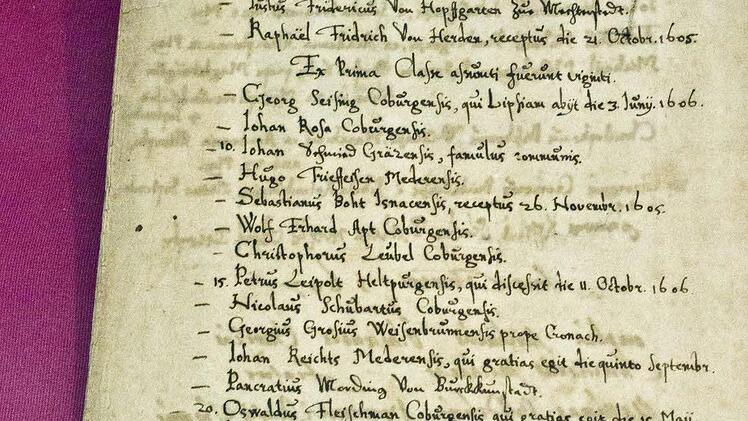 — Justus Fridericus Von Hopffgarten Zue Mechterstedt.
— Raphaël Fridrich Von Herden, receptus die 21. Octobr. 1605.
Ex Prima Classe assumti fuerunt viginti.
— Georg Seising Coburgensis, qui Lipsiam abijt die 3. Junij. 1606.
— Iohan Rosa Coburgensis.
— 10. Iohan Schmied Gräzensis, famulus communis.
— Hugo Frieffeisen Mederensis.
— Sebastianus Boht Isnacensis, receptus 26. Novembr. 1605.
— Wolf Erhard Apt Coburgensis.
— Christophorus Leubel Coburgensis.
— 15. Petrus Leipolt Heltpurgensis, qui discessit die 11. Octobr. 1606.
— Nicolaus Schubartus Coburgensis.
— Georgius Grosius Weisenbrunnensis prope Cronach.
— Iohan Reichts Mederensis, qui gratias egit die quinto Septembr.
— Pancratius Mording Von Burckkunstadt.
— 20. Oswaldus Fleischman Coburgensis qui gratias egit die 15 Maij